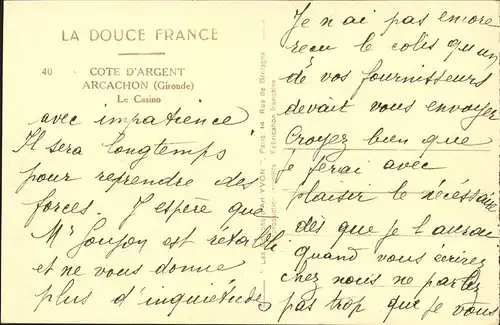 LA DOUCE FRANCE
40 COTE D'ARGENT
ARCACHON (Gironde)
Le Casino
avec impatience
Il sera longtemps
pour reprendre des
forces. J'espère que
Mr Goujon est rétabli
et ne vous donne
plus d'inquiétudes
YVON", Paris, 14, Rue de Bretagne
Fabrication française
Je n'ai pas encore
reçu le colis qu'un
de vos fournisseurs
devait vous envoyer
Croyez bien que
je ferai avec
plaisir le nécessaire
dès que je l'aurai
quand vous écrirez
chez nous ne parlez
pas trop que je vous